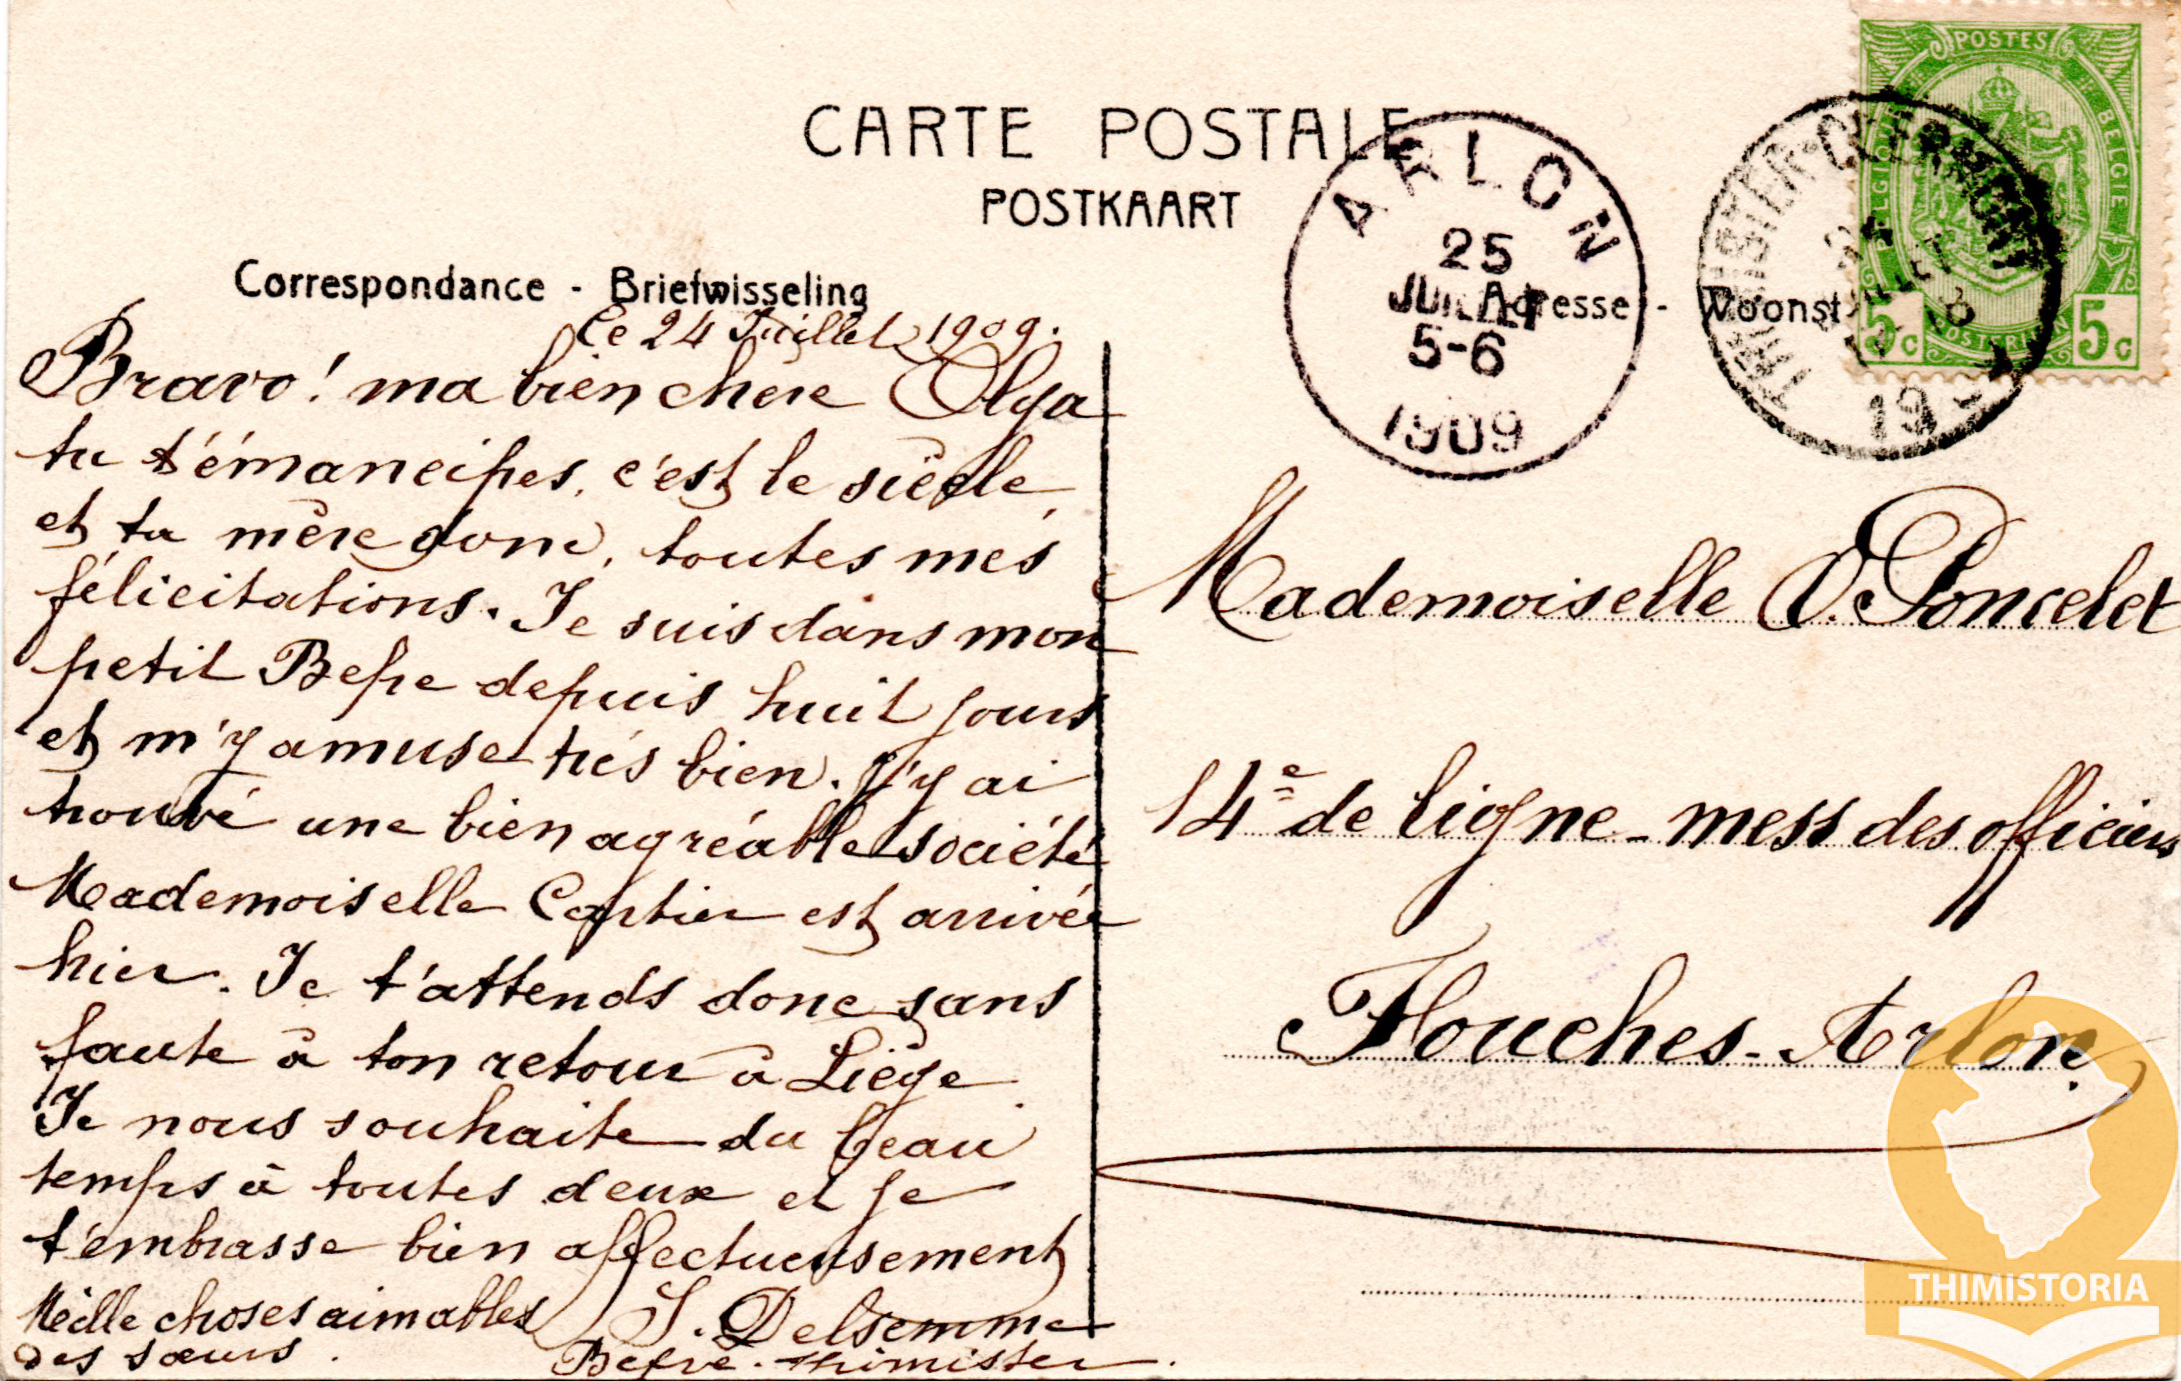 CARTE POSTALE
POSTKAART
Correspondance - Briefwisseling
Adresse - Woonst
POSTES
BELGIQUE
BELGIE
POSTERIJEN
5c
5c
ARLON
25
JUILLET
5-6
1909
THIMISTER-CLERMONT
19
Le 24 Juillet 1909.
Bravo! ma bien chère Olga
tu t'émancipes, c'est le siècle
et ta mère donc, toutes mes
félicitations. Je suis dans mon
petit Befve depuis huit jours
et m'y amuse très bien. J'y ai
trouvé une bien agréable société
Mademoiselle est arrivée
hier. Je t'attends donc sans
faute à ton retour à Liège
Je nous souhaite du beau
temps à toutes deux et je
t'embrasse bien affectueusement
Mille choses aimables J. Delsemme
des sœurs. Befve-Thimister.
Mademoiselle O. Poncelet
14e de ligne - mess des officiers
Fouches-Arlon
THIMISTORIA